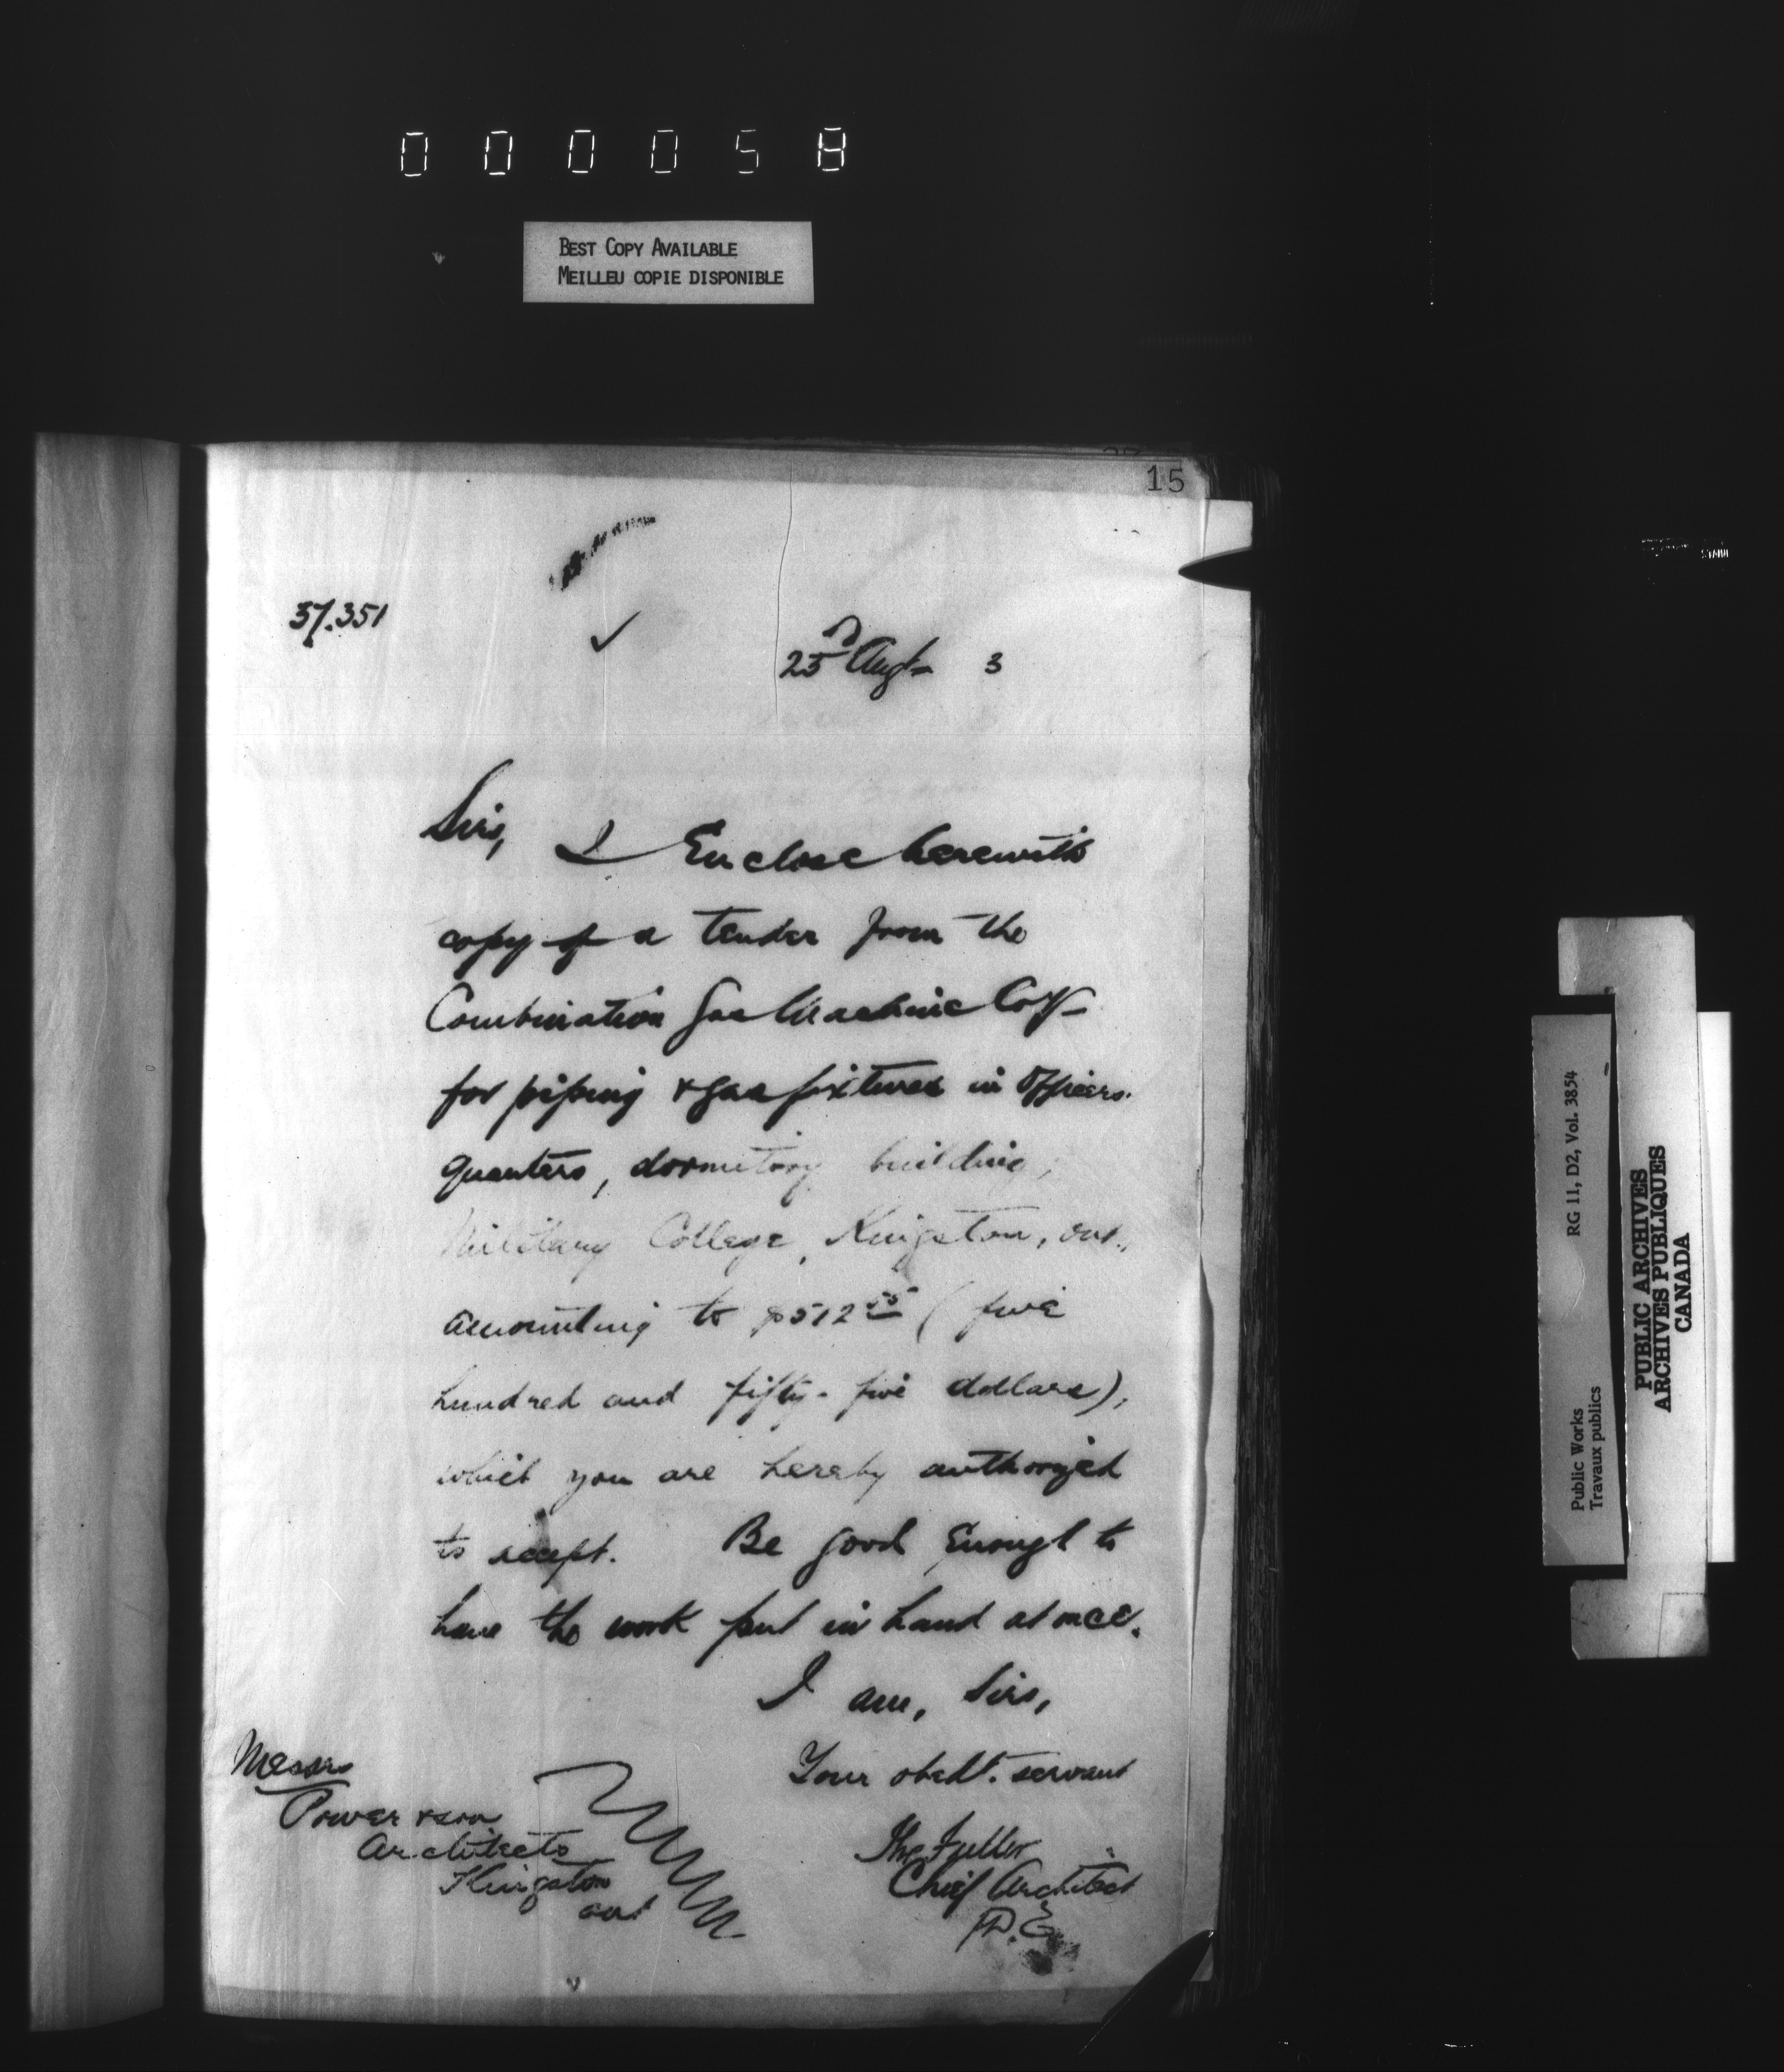 000058
BEST COPY AVAILABLE
MEILLEU COPIE DISPONIBLE
15
37.351
25 Augt 3
Sirs,
I Enclose herewith
copy of a tender from the
Combination Gas Machine Coy
for piping & gas fixtures in Officers
quarters, dormitory building,
Military College, Kingston, Ont.,
amounting to $512 55 (five
hundred and fifty-five dollars),
which you are hereby authorized
to accept. Be good Enough to
have the work put in hand at once.
I am, Sirs,
Your obedt. servant
Thos Fuller
Chief Architect
D.E
Messrs
Power & Son
Architects
Kingston
Ont
RG 11, D2, Vol. 3854
Public Works
Travaux publics
PUBLIC ARCHIVES
ARCHIVES PUBLIQUES
CANADA